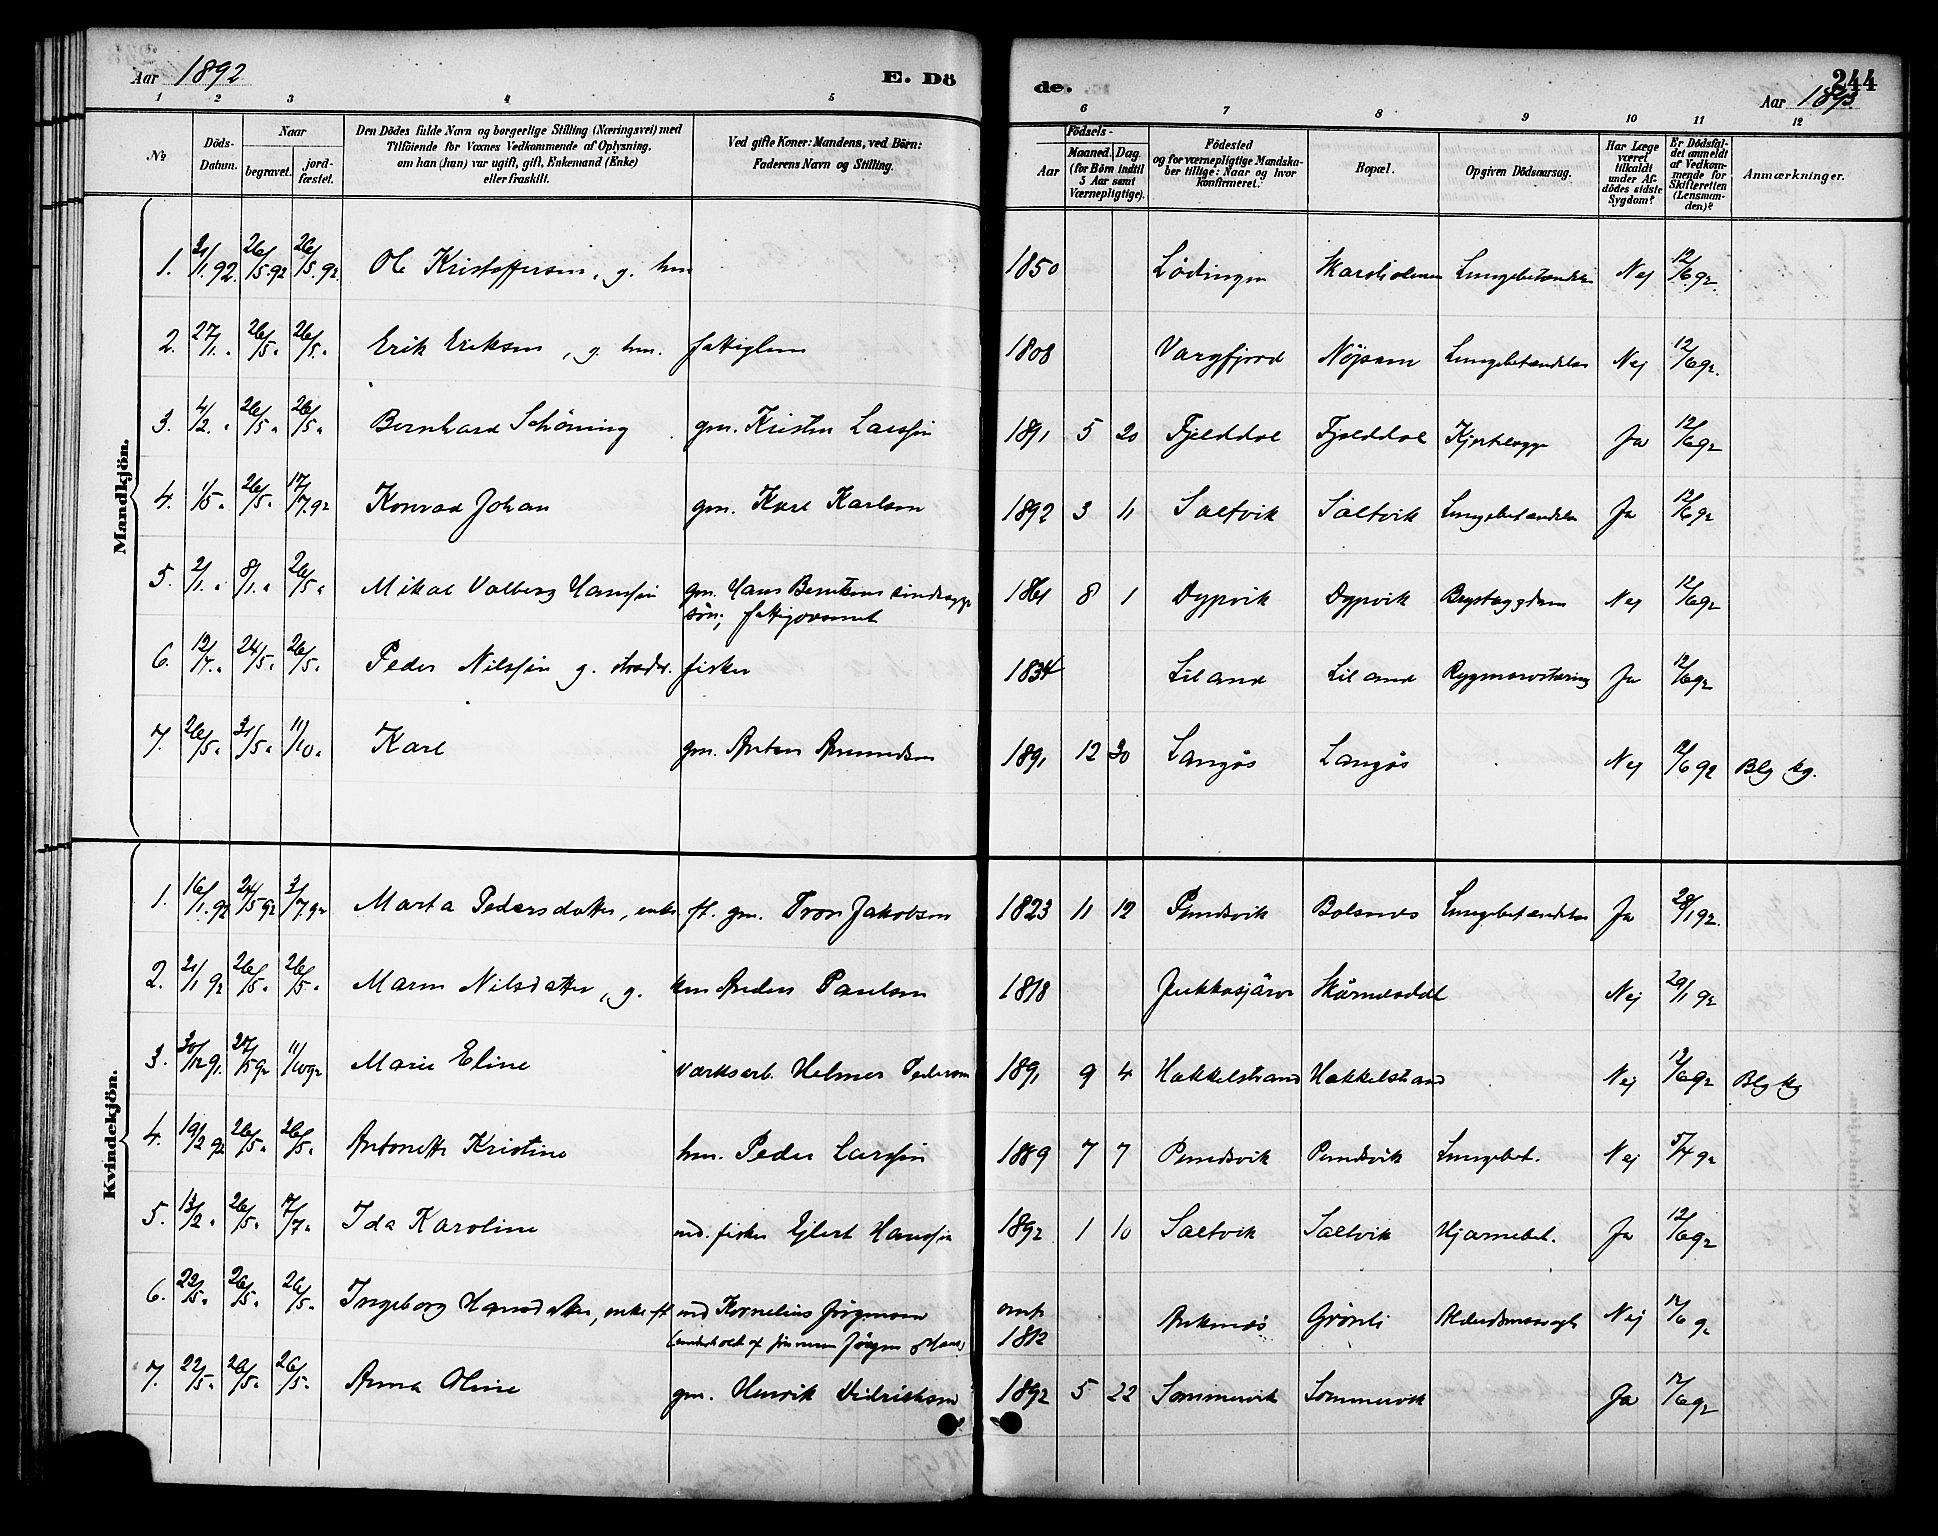 Aar 1892 E. Dö de. Aar 1893 244
1 2 3 4 5 6 7 8 9 10 11 12
№
Döds-Datum.
Naar
begravet.
jord-fæstet.
Den Dödes fulde Navn og borgerlige Stilling (Næringsvei) med
Tilföiende for Voxnes Vedkommende af Oplysning,
om han (hun) var ugift, gift, Enkemand (Enke)
eller fraskilt.
Ved gifte Koner: Mandens, ved Börn:
Faderens Navn og Stilling.
Födsels-
Aar
Maaned. Dag.
(for Börn indtil
5 Aar samt
Værnepligtige).
Födested
og for værnepligtige Mandska-
ber tillige: Naar og hvor
konfirmeret.
Bopæl.
Opgiven Dödsaarsag.
Har Læge
været
tilkaldt
under Af-
dödes sidste
Sygdom?
Er Dödsfal-
det anmeldt
af Vedkom-
mende for
Skifteretten
(Lensman-
den)?
Anmærkninger.
Mandkjön.
1. 21/1.92. 26/5.92 26/5.92. Ole Kristoffersen, g. hm 1850 Lödingen Lungebetændelse Nej 12/6.92.
2. 27/1. " 26/5 " 26/5 " Erik Eriksen, g. hm. fattiglem 1808 Vargfjord Nöjsom Lungebetændelse Nej 12/6 92.
3. 4/2. " 26/5 " 26/5 " Bernhard Schöning gm. Kristen Larssen 1891 5 20 Fjelddal Fjelddal Ja 12/6 92
4. 1/5 " 26/5 " 17/7.92 Konrad Johan gm. Karl Karlsen 1892 3 11 Saltvik Saltvik Lungebetændelse Ja 12/6 92
5. 2/1. " 8/1. " 26/5 " Mikal Valberg Hanssen gm. Hans Berntsens
sön; 1861 8 1 Dypvik Dypvik Brystsygdom Nej 12/6 92
6. 12/4. " 24/5 " 26/5 " Peder Nilssen g. fisker 1834 Liland Liland Rygmarvstæring Ja 12/6 92
7. 26/5 " 31/5 " 11/10 " Karl gm. Anton Amundsen 1891 12 30 Langås Langås Nej 12/6 92 Blg kg.
Kvindekjön.
1. 16/1.92 24/5 92 3/7.92 Marta Pedersdatter, enke ft. gm. Tron Jakobsen 1823 11 12 Pundsvik Balsnes Lungebetændelse Ja 28/1 92.
2. 21/1 92 26/5 " 26/5 " Maren Nilsdatter, g. hm Anders Paulsen 1818 Jukkasjärvi Nej 29/1 92
3. 30/12 91. 27/5 92 11/10 92 Marie Eline Værksarb. Helmer Pedersen 1891 9 4 Hakkelstrand Hakkelstrand Nej 12/6 92 Blg kg
4. 19/2 92 26/5 " 26/5 " Antonette Kristine hm. Peder Larssen 1889 7 7 Pundsvik Pundsvik Lungebet. Nej 5/4 92
5. 13/2 " 26/5 " 17/7 " Ida Karoline ind. fisker Ejlert Hanssen 1892 1 10 Saltvik Saltvik Hjærnebet. Ja 12/6 92
6. 22/5 " 26/5 " 26/5 " Ingeborg Hansdatter, enke ft ind Kornelius Jörgensen
omtr 1812 Ankenæs Grönli Alderdomssvagh Nej 12/6 92
7. 22/5 " 26/5 " 26/5 " Anna Oline gm. Henrik Didriksen 1892 5 22 Sommervik Sommervik Ja 12/6 92